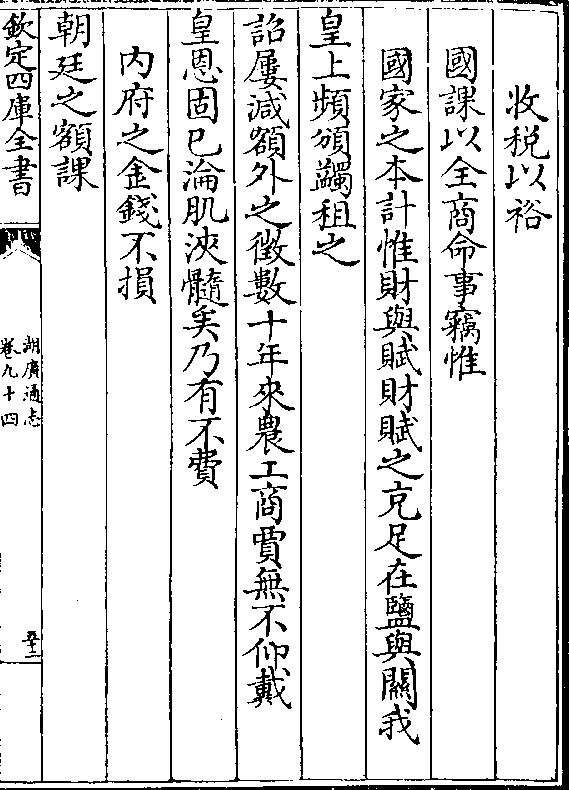 收税以裕
國課以全商命事竊惟
國家之本計惟財與賦財賦之充足在鹽與關我
皇上頻頒蠲租之
詔屢減額外之徵數十年來農工商賈無不仰戴
皇恩固已淪肌浹髓矣乃有不費
内府之金錢不損
朝廷之額課
欽定四庫全書
湖廣通志
卷九十四